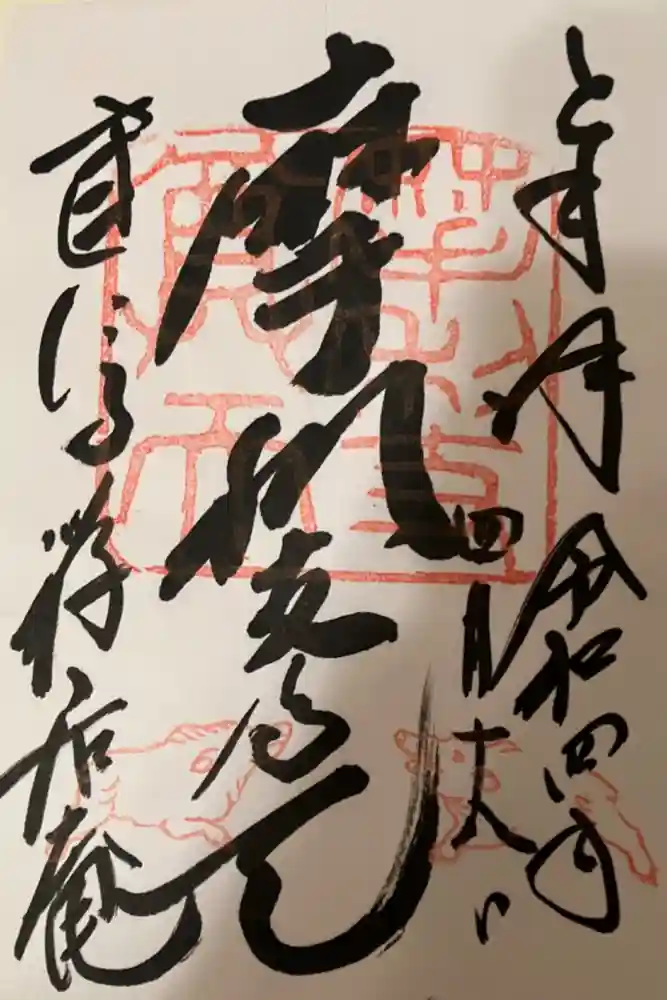 奉拝 令和四年
四月十六日
摩利支尊天
建仁寺禅居庵